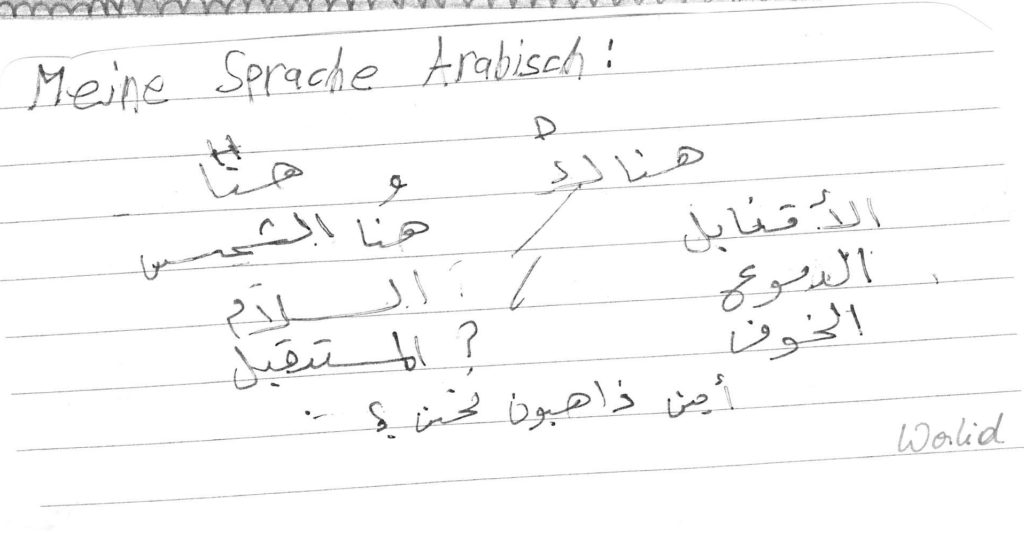 Meine Sprache Arabisch:
D H
هناك و هنا
الأقنابل هنا الشمس
الدموع / السلام
الخوف ? المستقبل
أين ذاهبون نحن؟..
Walid